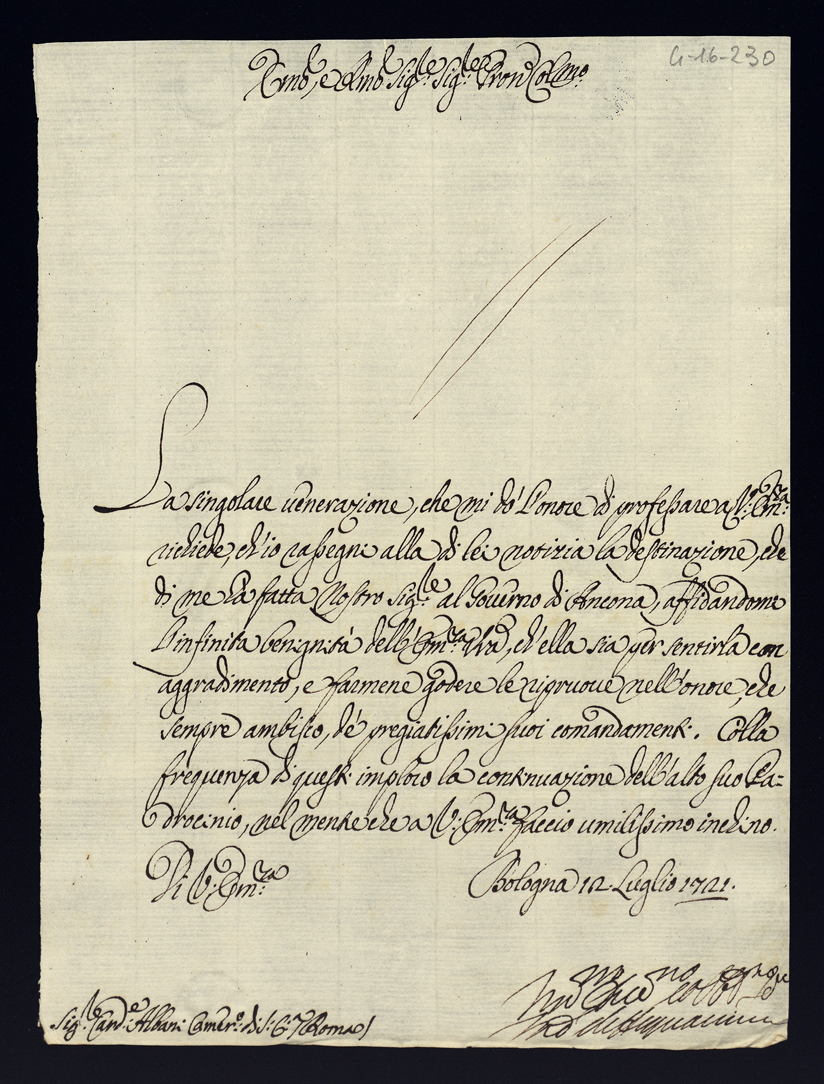 G-16-230
Emo, e Rmo Sig.re Sig.re Pron Colmo
La singolare venerazione, che mi dò l'onore di professare a V: Em:za
richiede, ch'io rassegni alla di lei notizia la destinazione, che
di me hà fatta Nostro Sig.re al Governo di Ancona, affidandomi
l'infinita benignità dell'Em:za Vra, ch'ella sia per sentirla con
aggradimento, e farmene godere le riprruove nell'onore, che
sempre ambisco, de' pregiatissimi suoi comandamenti. Colla
frequenza di questi imploro la continuazione dell'alto suo Pa=
drocinio, nel mentre che a V: Em:za faccio umilissimo inchino.
Di V: Em:za
Bologna 12 Luglio 1721.
Sig.re Card.e Albani Camer.o di S: C: (Roma)
Um.mo